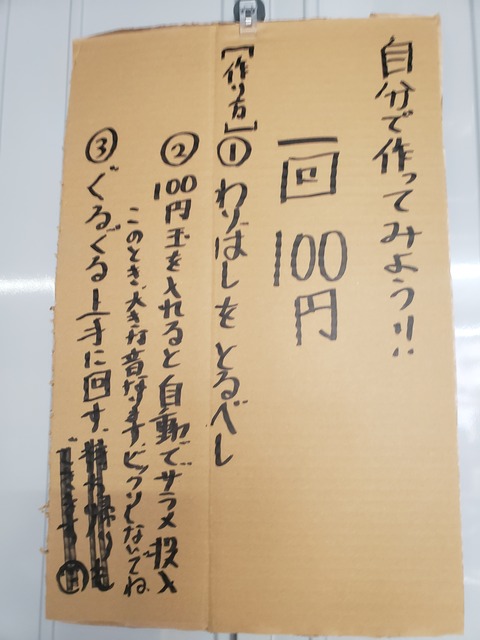 自分で作ってみよう!!
一回 100円
【作り方】① わりばしをとるべし
② 100円玉を入れると自動でザラメ投入
このとき大きな音なります。ビックリしないでね
③ ぐるぐる上手に回す。